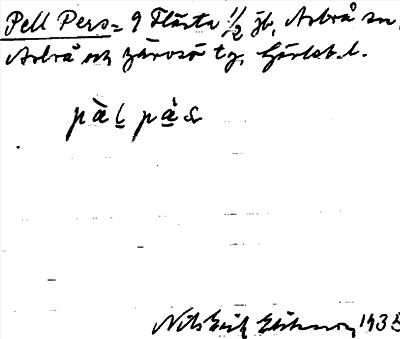 Pell Pers = 9 Flästa 1/2 jb, Arbrå sn,
Arbrå och Järvsö tg, Gävleb. l.
pàl pàs
Nils Erik Eriksson, 1935